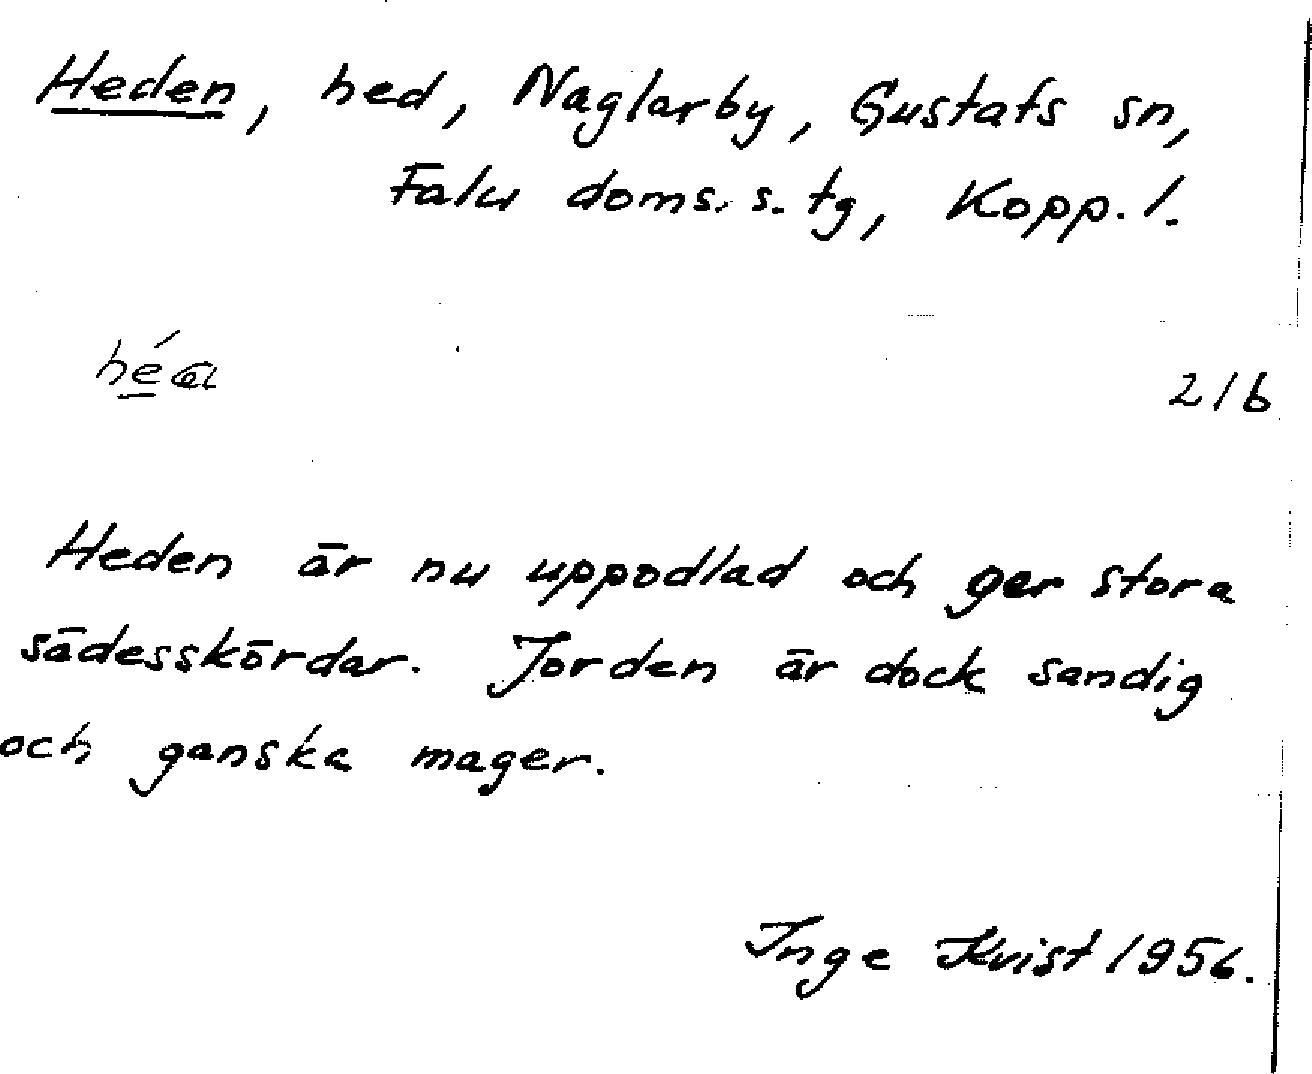 Heden, hed, Naglarby, Gustafs sn,
Falu doms. s. tg, Kopp. l.
216
Heden är nu uppodlad och ger stora
sädesskördar. Jorden är dock sandig
och ganska mager.
Inge Kvist 1956.